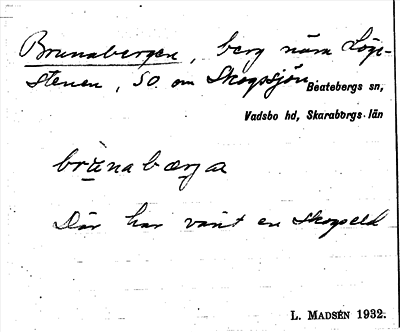 Brunabergen, berg nära Lögi-
stenen, SO. om Skogssjön.
Beatebergs sn,
Vadsbo hd, Skarabbrgs. län
brùnabærja
Där har varit en skogseld
L. MADSÉN 1932.